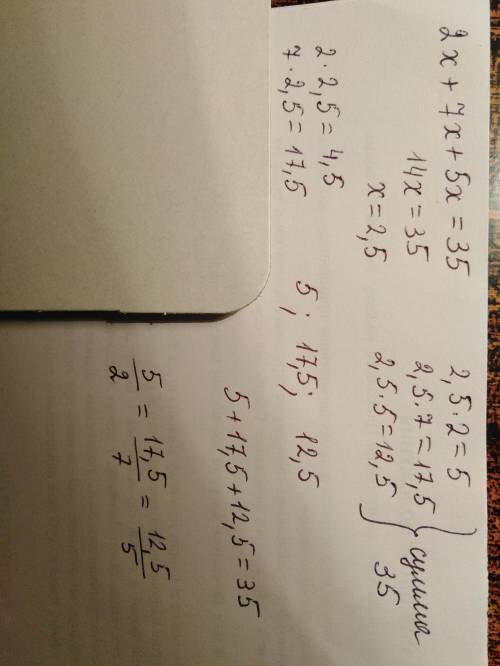 2x + 7x + 5x = 35
14x = 35
x = 2,5
2 · 2,5 = 4,5
7 · 2,5 = 17,5
2,5 · 2 = 5
2,5 · 7 = 17,5
2,5 · 5 = 12,5
} сумма
35
5; 17,5; 12,5
5 + 17,5 + 12,5 = 35
5/2 = 17,5/7 = 12,5/5